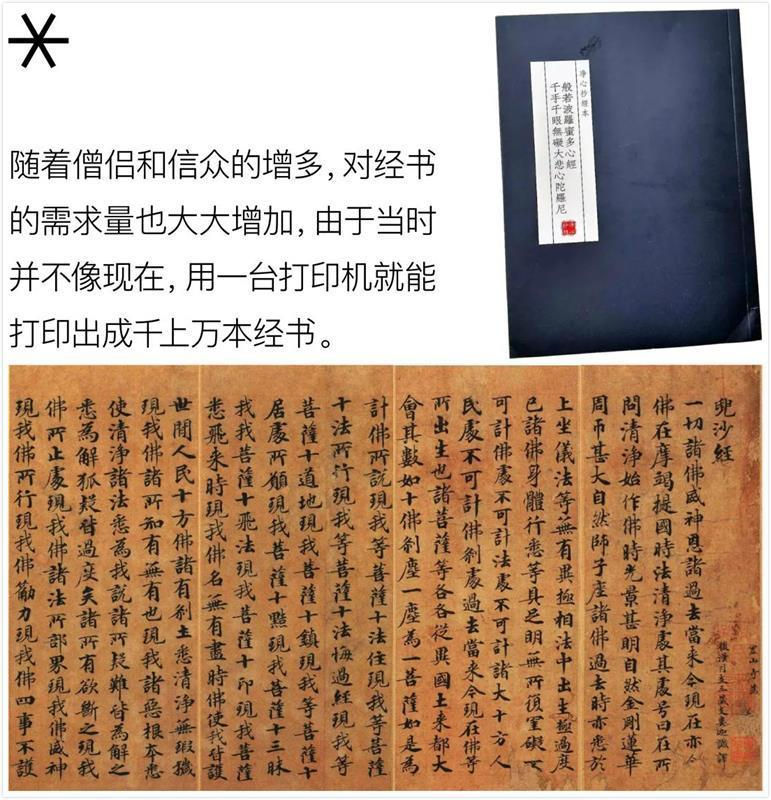 随着僧侣和信众的增多，对经书
的需求量也大大增加，由于当时
并不像现在，用一台打印机就能
打印出成千上万本经书。
净心抄經本
般若波羅蜜多心經
千手千眼無礙大悲心陀羅尼
兜沙經
後漢月支三藏支婁迦讖譯
一切諸佛威神恩諸過去當來今現在亦令
佛在摩竭提國時法清淨處其處号曰在所
問清淨始作佛時光景甚明自然金剛蓮華
周帀甚大自然師子座諸佛過去時亦悉於
上坐儀法等無有異極相法中出生極過度
已諸佛身體行悉等具足明無所復罣礙不
可計佛處不可計法處不可計諸大十方人
民處不可計佛剎處過去當來今現在佛等
所出生也諸菩薩等各各從異國土来都大
會其數如十佛剎塵一塵為一菩薩如是為
計佛所說現我等菩薩十法住現我等菩薩
十法所行現我等菩薩十法悔過經現我等
菩薩十道地現我等菩薩十鎮現我等菩薩十
居處所願現我菩薩十黠現我菩薩十三昧
我我菩薩十飛法現我菩薩十印現我菩薩
悉飛来時現我佛名無有盡時佛使我皆護
世間人民十方佛諸有剎土悉清淨無瑕穢
現我佛諸所知有無有也現我諸惡根本悉
使清淨諸法悉為我說諸所疑難皆為解之
悉為解狐疑皆過度矣諸所有欲斷之現我
佛所止處現我佛諸法所部界現我佛威神
現我佛所行現我佛勸力現我佛四事不護